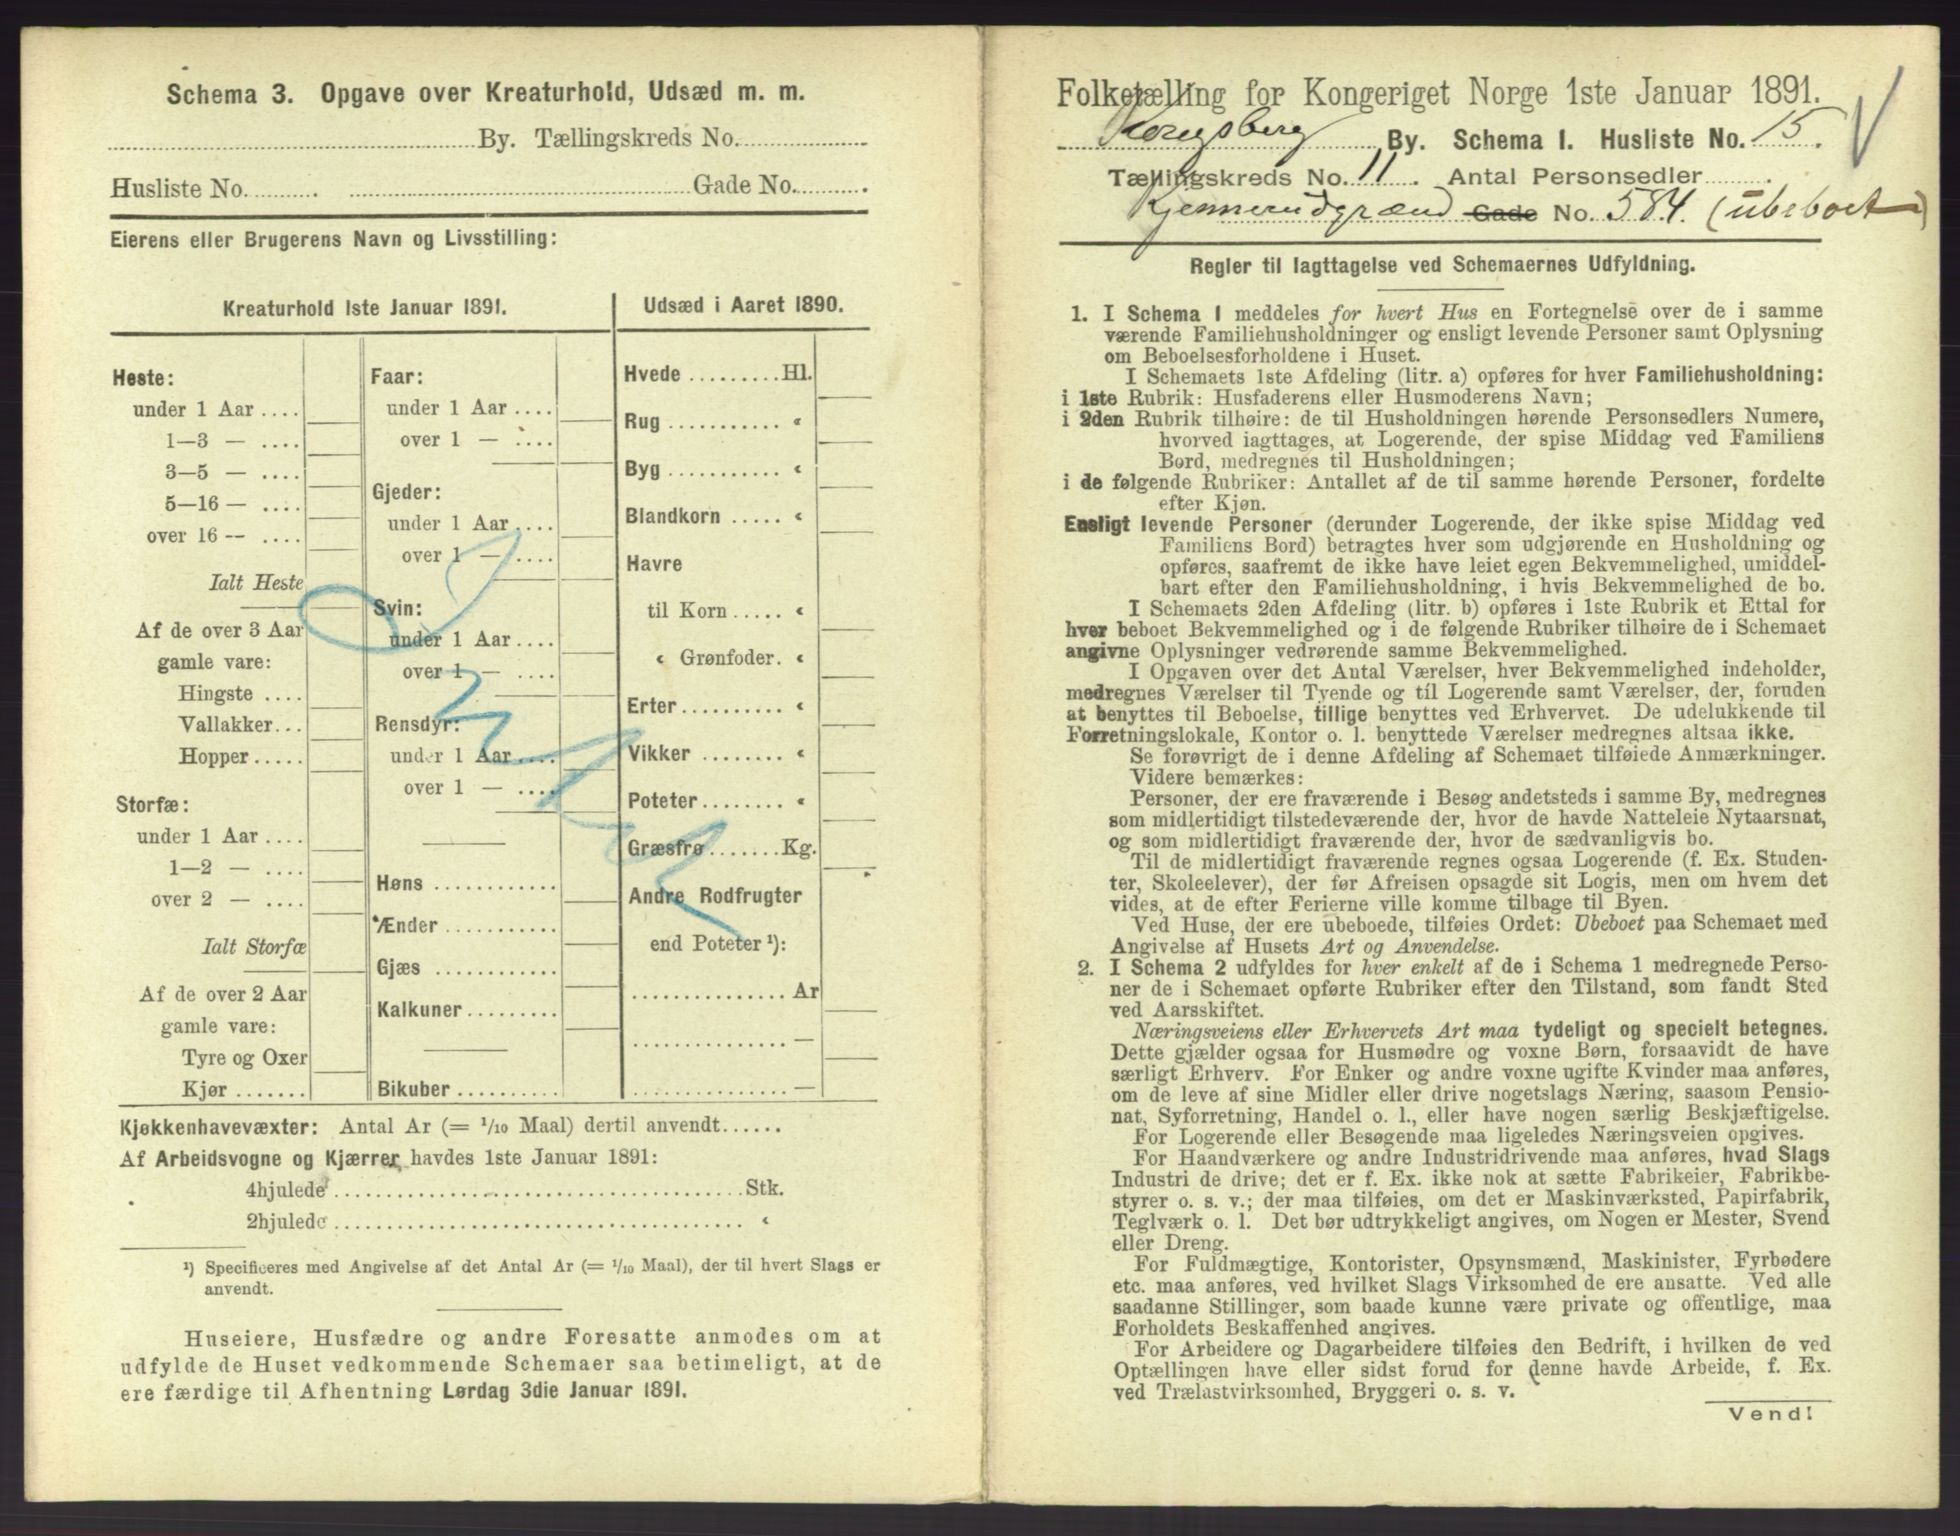 Schema 3. Opgave over Kreaturhold, Udsæd m. m.
By. Tællingskreds No.
Husliste No. Gade No.
Eierens eller Brugerens Navn og Livsstilling:
Kreaturhold 1ste Januar 1891.
Heste:
under 1 Aar
1—3 —
3—5 —
5—16 —
over 16 —
Ialt Heste
Af de over 3 Aar
gamle vare:
Hingste
Vallakker
Hopper
Storfæ:
under 1 Aar
1—2 —
over 2 —
Ialt Storfæ
Af de over 2 Aar
gamle vare:
Tyre og Oxer
Kjør
Faar:
under 1 Aar
over 1 —
Gjeder:
under 1 Aar
over 1 —
Svin:
under 1 Aar
over 1 —
Rensdyr:
under 1 Aar
over 1 —
Høns
Ænder
Gjæs
Kalkuner
Bikuber
Udsæd i Aaret 1890.
Hvede Hl.
Rug «
Byg «
Blandkorn «
Havre
til Korn «
« Grønfoder. «
Erter «
Vikker «
Poteter «
Græsfrø Kg.
Andre Rodfrugter
end Poteter ¹):
Ar
—
—
Kjøkkenhavevæxter: Antal Ar (= 1/10 Maal) dertil anvendt
Af Arbeidsvogne og Kjærrer havdes 1ste Januar 1891:
4hjulede Stk.
2hjulede «
¹) Specificeres med Angivelse af det Antal Ar (= 1/10 Maal), der til hvert Slags er
anvendt.
Huseiere, Husfædre og andre Foresatte anmodes om at
udfylde de Huset vedkommende Schemaer saa betimeligt, at de
ere færdige til Afhentning Lørdag 3die Januar 1891.
Folketælling for Kongeriget Norge 1ste Januar 1891.
Kongsberg By. Schema I. Husliste No. 15.
Tællingskreds No. 11. Antal Personsedler
Kjennerudgrænd Gade No. 584. (ubeboet)
Regler til Iagttagelse ved Schemaernes Udfyldning.
1. I Schema 1 meddeles for hvert Hus en Fortegnelse over de i samme
værende Familiehusholdninger og ensligt levende Personer samt Oplysning
om Beboelsesforholdene i Huset.
I Schemaets 1ste Afdeling (litr. a) opføres for hver Familiehusholdning:
i 1ste Rubrik: Husfaderens eller Husmoderens Navn;
i 2den Rubrik tilhøire: de til Husholdningen hørende Personsedlers Numere,
hvorved iagttages, at Logerende, der spise Middag ved Familiens
Bord, medregnes til Husholdningen;
i de følgende Rubriker: Antallet af de til samme hørende Personer, fordelte
efter Kjøn.
Ensligt levende Personer (derunder Logerende, der ikke spise Middag ved
Familiens Bord) betragtes hver som udgjørende en Husholdning og
opføres, saafremt de ikke have leiet egen Bekvemmelighed, umiddel-
bart efter den Familiehusholdning, i hvis Bekvemmelighed de bo.
I Schemaets 2den Afdeling (litr. b) opføres i 1ste Rubrik et Ettal for
hver beboet Bekvemmelighed og i de følgende Rubriker tilhøire de i Schemaet
angivne Oplysninger vedrørende samme Bekvemmelighed.
I Opgaven over det Antal Værelser, hver Bekvemmelighed indeholder,
medregnes Værelser til Tyende og til Logerende samt Værelser, der, foruden
at benyttes til Beboelse, tillige benyttes ved Erhvervet. De udelukkende til
Forretningslokale, Kontor o. l. benyttede Værelser medregnes altsaa ikke.
Se forøvrigt de i denne Afdeling af Schemaet tilføiede Anmærkninger.
Videre bemærkes:
Personer, der ere fraværende i Besøg andetsteds i samme By, medregnes
som midlertidigt tilstedeværende der, hvor de havde Natteleie Nytaarsnat,
og som midlertidigt fraværende der, hvor de sædvanligvis bo.
Til de midlertidigt fraværende regnes ogsaa Logerende (f. Ex. Studen-
ter, Skoleelever), der før Afreisen opsagde sit Logis, men om hvem det
vides, at de efter Ferierne ville komme tilbage til Byen.
Ved Huse, der ere ubeboede, tilføies Ordet: Ubeboet paa Schemaet med
Angivelse af Husets Art og Anvendelse.
2. I Schema 2 udfyldes for hver enkelt af de i Schema 1 medregnede Perso-
ner de i Schemaet opførte Rubriker efter den Tilstand, som fandt Sted
ved Aarsskiftet.
Næringsveiens eller Erhvervets Art maa tydeligt og specielt betegnes.
Dette gjælder ogsaa for Husmødre og voxne Børn, forsaavidt de have
særligt Erhverv. For Enker og andre voxne ugifte Kvinder maa anføres,
om de leve af sine Midler eller drive nogetslags Næring, saasom Pensio-
nat, Syforretning, Handel o. l., eller have nogen særlig Beskjæftigelse.
For Logerende eller Besøgende maa ligeledes Næringsveien opgives.
For Haandværkere og andre Industridrivende maa anføres, hvad Slags
Industri de drive; det er f. Ex. ikke nok at sætte Fabrikeier, Fabrikbe-
styrer o. s. v.; der maa tilføies, om det er Maskinværksted, Papirfabrik,
Teglværk o. l. Det bør udtrykkeligt angives, om Nogen er Mester, Svend
eller Dreng.
For Fuldmægtige, Kontorister, Opsynsmænd, Maskinister, Fyrbødere
etc. maa anføres, ved hvilket Slags Virksomhed de ere ansatte. Ved alle
saadanne Stillinger, som baade kunne være private og offentlige, maa
Forholdets Beskaffenhed angives.
For Arbeidere og Dagarbeidere tilføies den Bedrift, i hvilken de ved
Optællingen have eller sidst forud for denne havde Arbeide, f. Ex.
ved Trælastvirksomhed, Bryggeri o. s. v.
Vend!